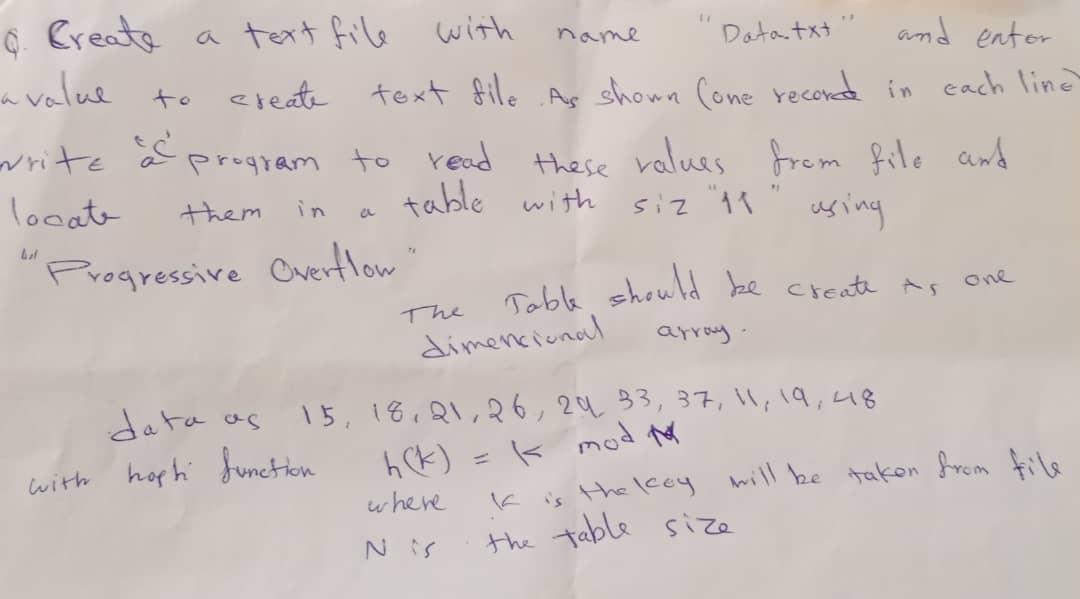 Q. Create a text file with name "Data.txt" and enter
a value to create text file. As shown (one record in each line)
write "c" program to read these values from file and
locate them in a table with siz "11" using
"Progressive Overflow"
The Table should be create As one
dimencional array.
data as 15, 18, 21, 26, 29, 33, 37, 11, 19, 48
with hash function h(k) = k mod N
where k is the key will be taken from file
N is the table size